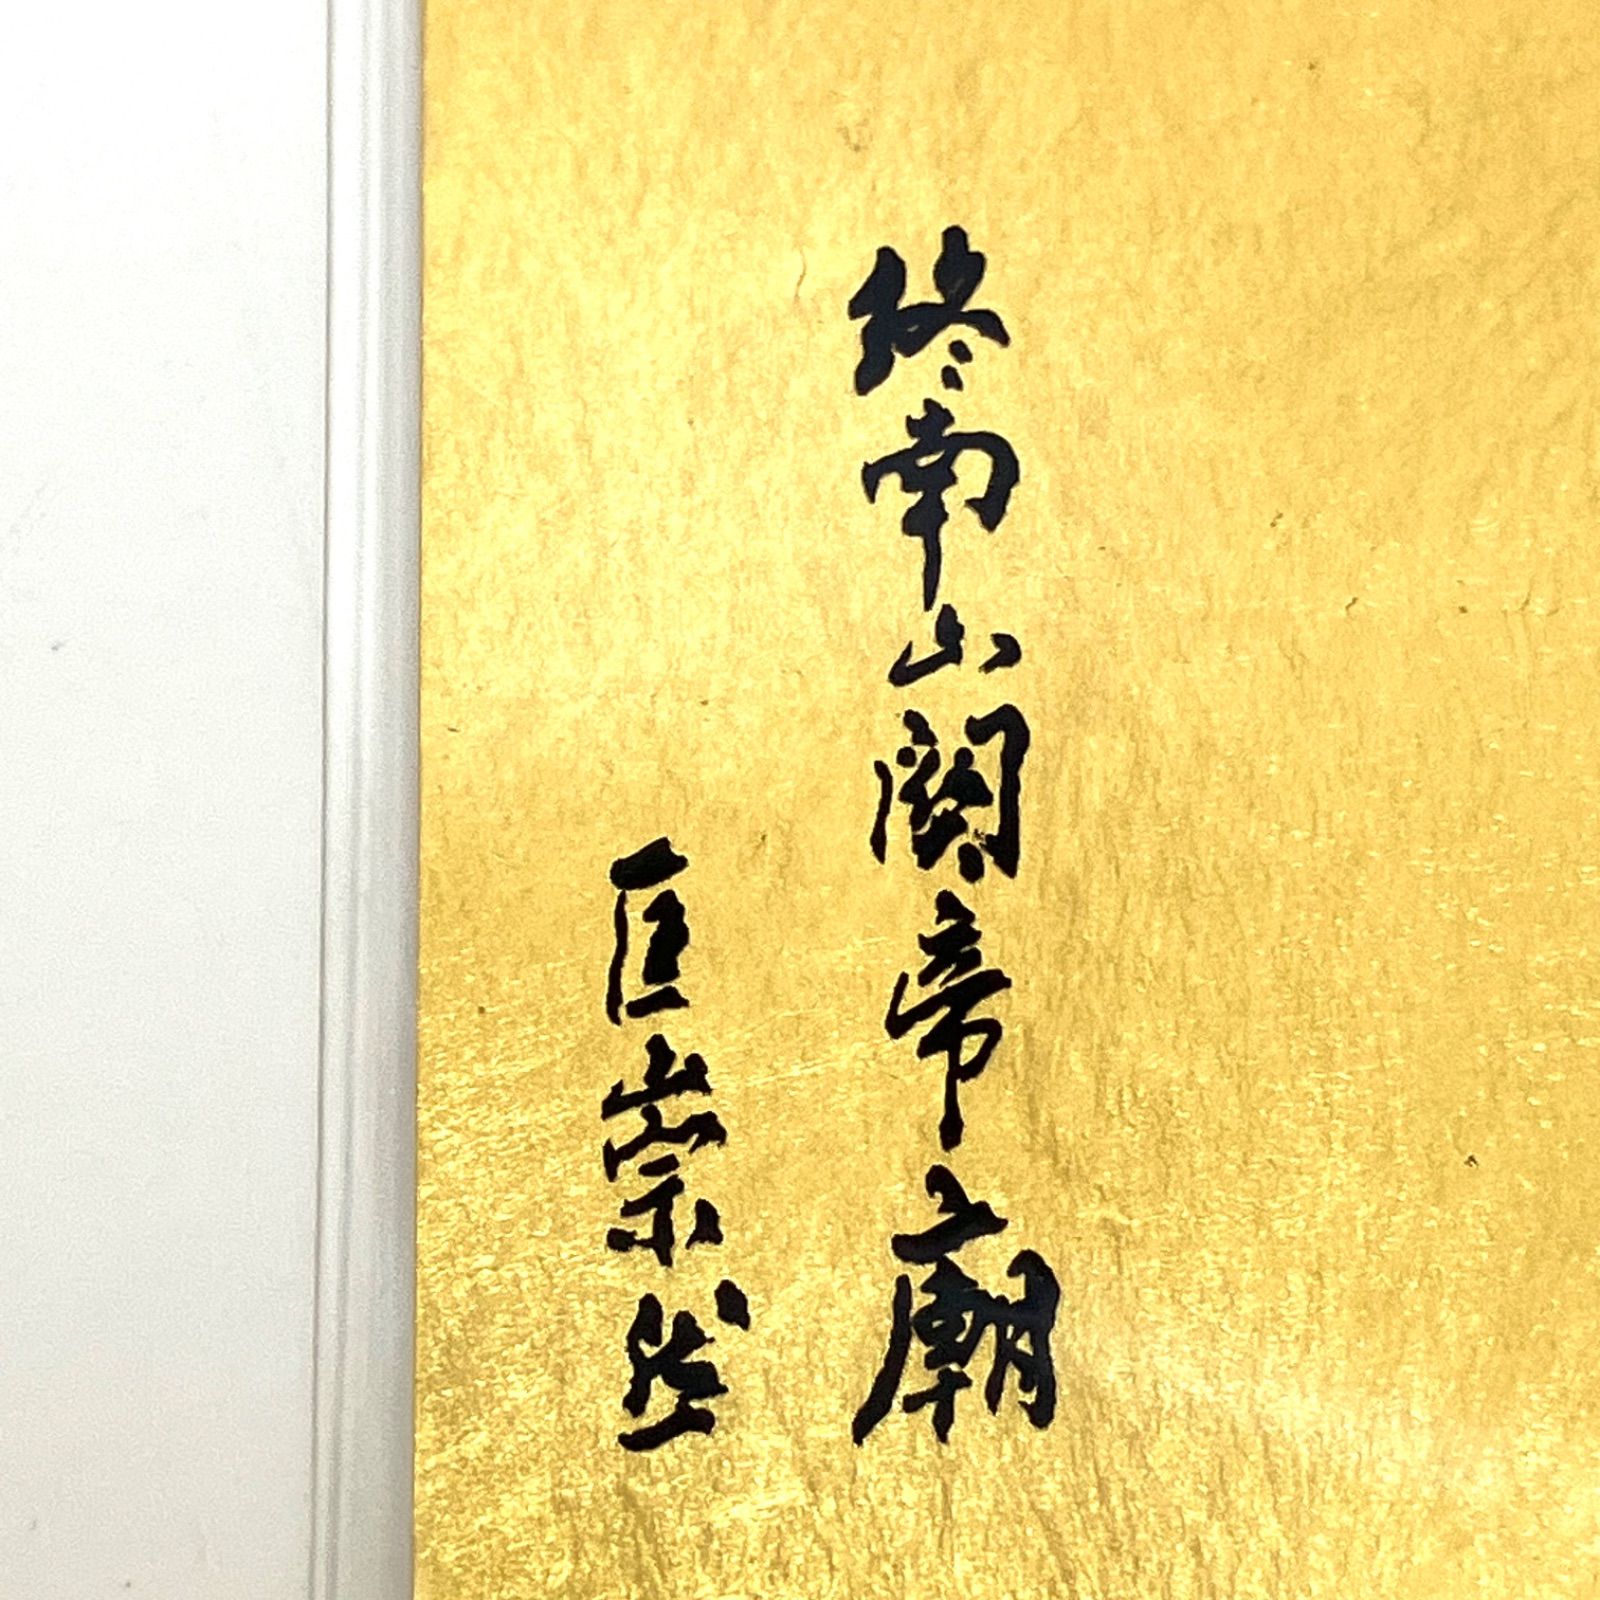 終南山關帝廟
匡崇然